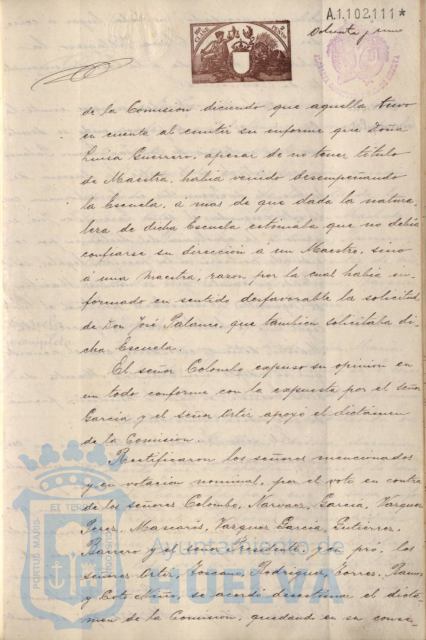 A.1.102.111*
Ochenta y uno
de la Comisión diciendo que aquella tuvo
en cuenta al emitir su informe que Doña
Luisa Guerrero, apesar de no tener título
de Maestra, había venido desempeñando
la Escuela, á mas de que dada la natura
leza de dicha Escuela estimaba que no debía
confiarse su dirección á un Maestro, sino
á una Maestra, razon por la cual había in
formado en sentido desfavorable la solicitud
de Don José Palanco, que tambien solicitaba di
cha Escuela.
El señor Colombo expuso su opinión en
un todo conforme con la expuesta por el señor
García y el señor Ortiz apoyó el dictámen
de la Comisión.
Rectificaron los señores mencionados
y en votacion nominal, por el voto en contra
de los señores Colombo, Narvaez, García, Vazquez
Perez, Mascarós, Vazquez García, Gutierrez,
Barrero y el señor Presidente, y en pró, los
señores Ortiz, Toscano, Rodriguez, Torres, Ramos
y Coto Niño, se acordó desestimar el dictá
men de la Comisión, quedando en su conse
PORTUS MARIS
ET TERRÆ
Ayuntamiento de
HUELVA